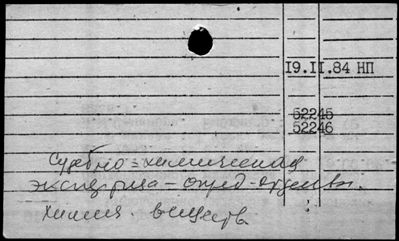 19.II.84 НП
52245
52246
Судебно-химическая
экспертиза – опред.
химич. веществ.